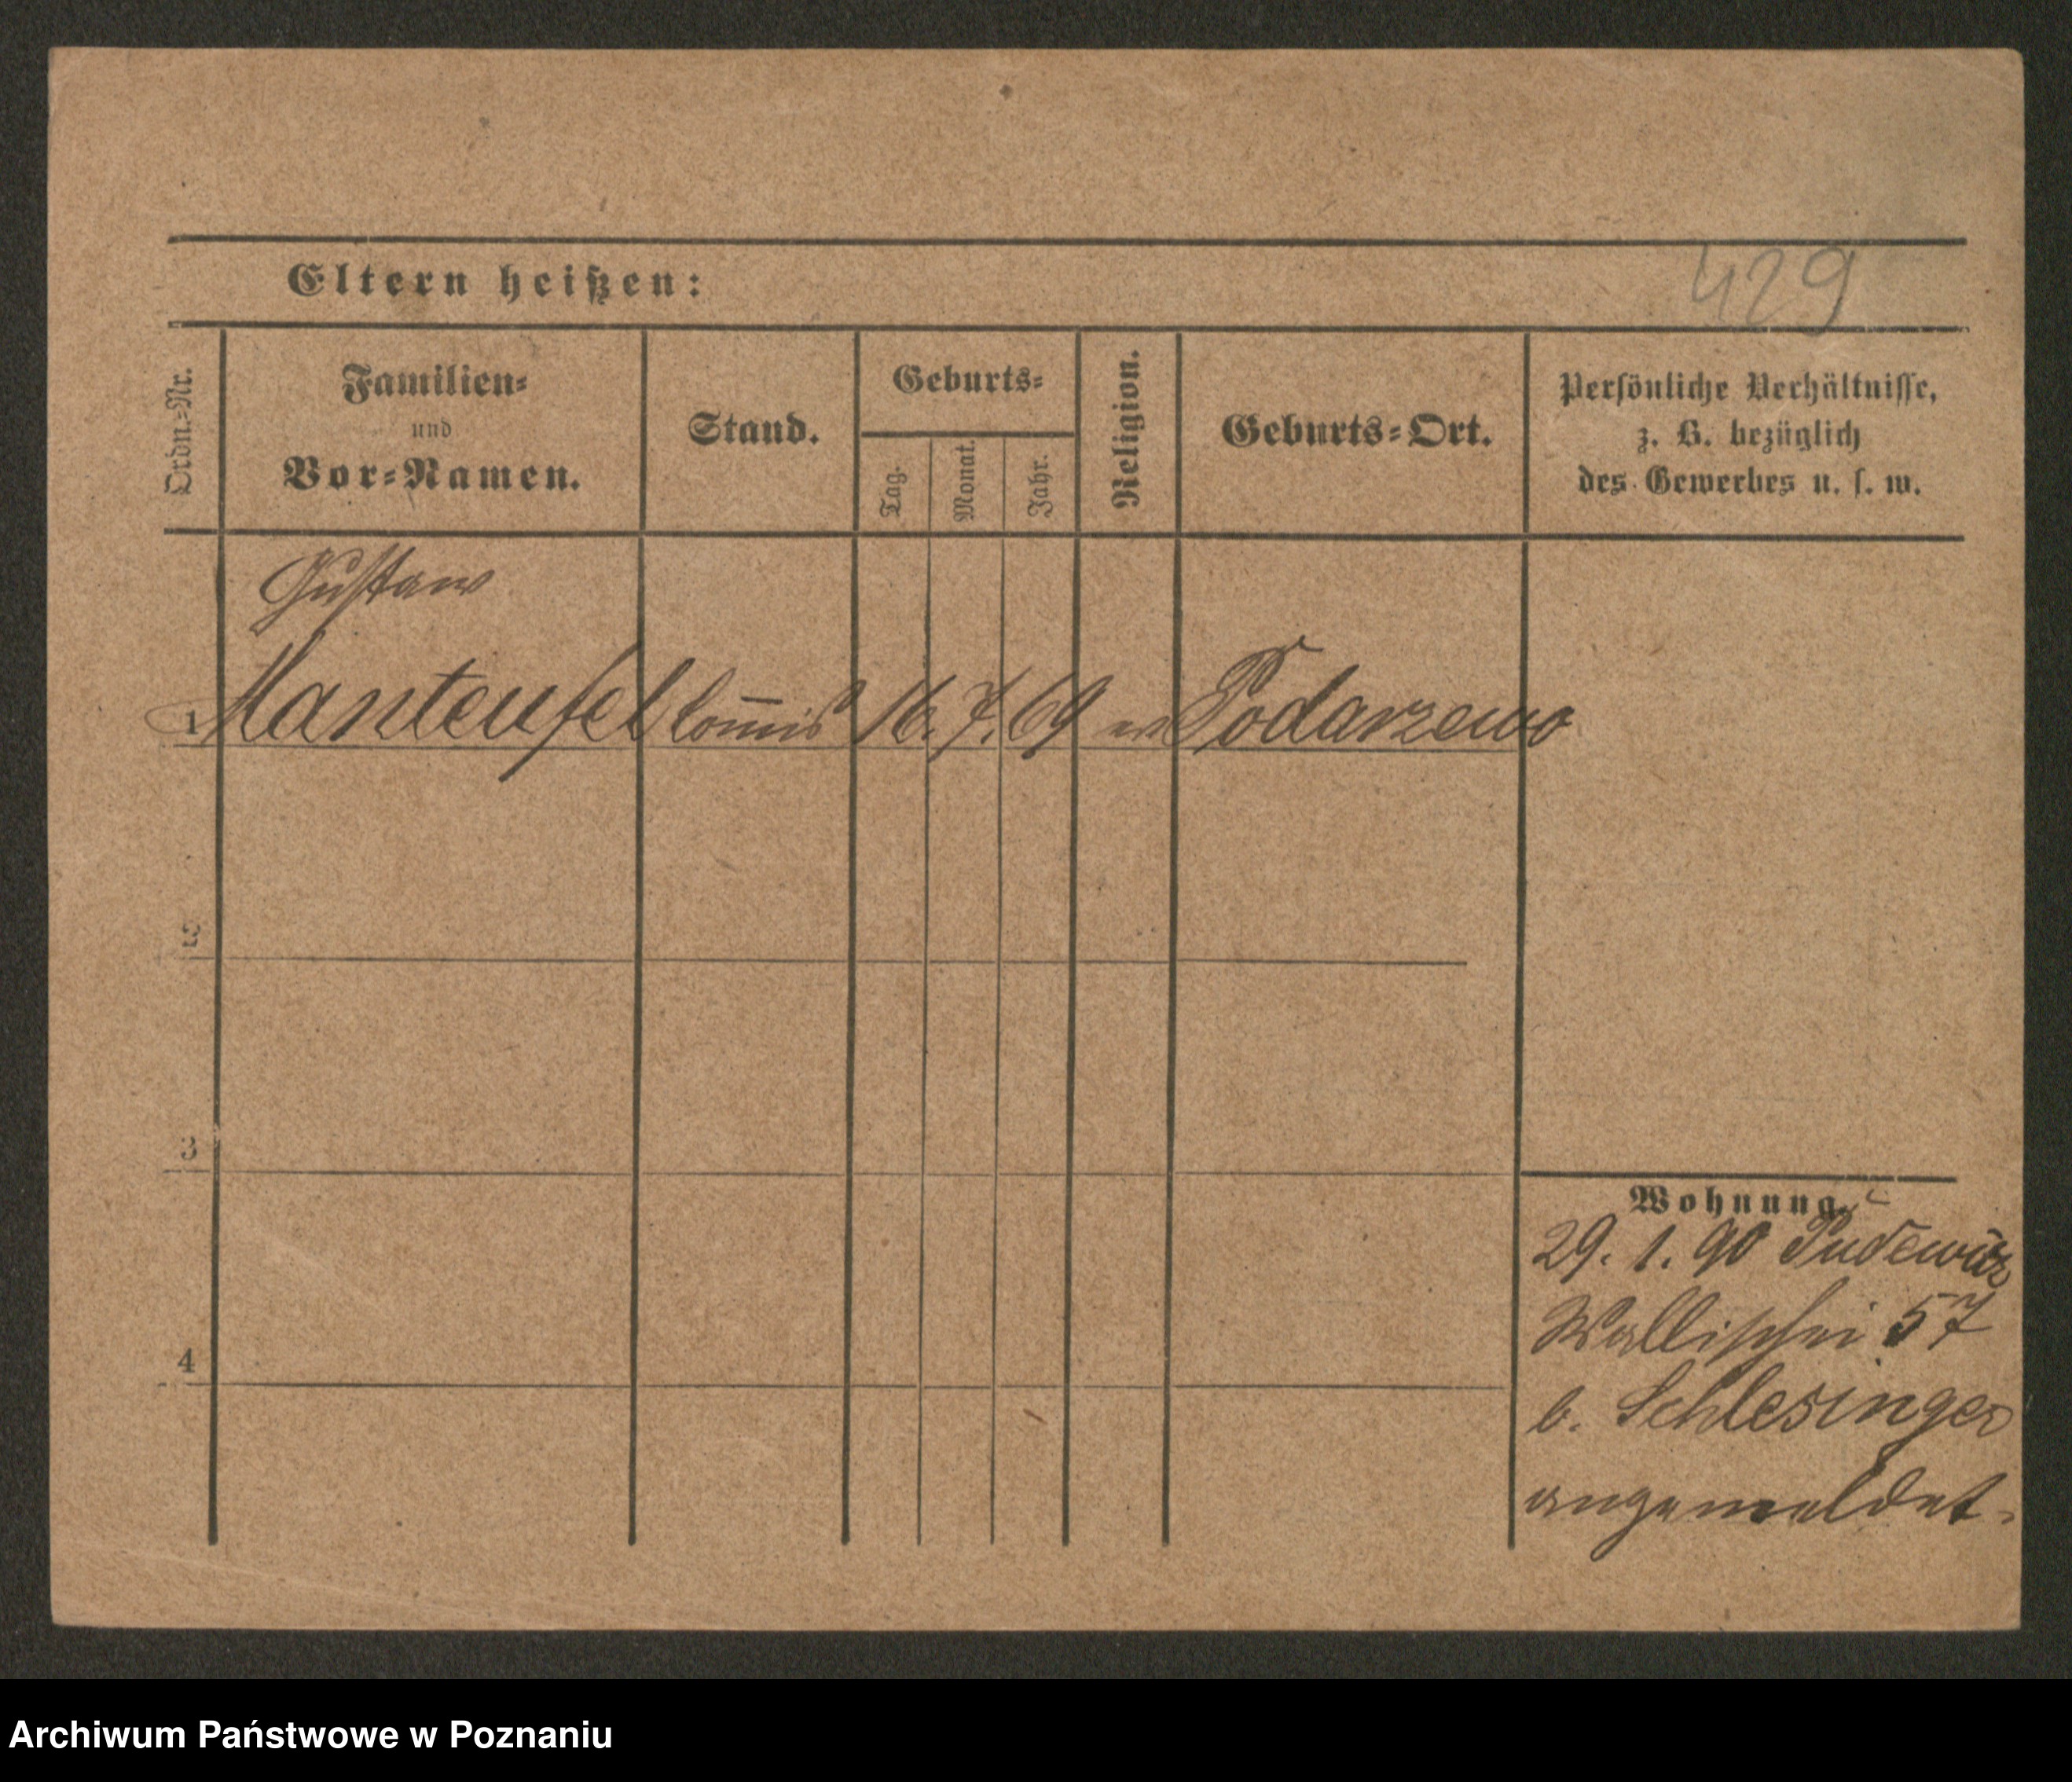 Eltern heißen:
429
Ordn.=Nr.
Familien=
und
Vor=Namen.
Stand.
Geburts=
Tag.
Monat.
Jahr.
Religion.
Geburts=Ort.
Persönliche Verhältnisse,
z. B. bezüglich
des Gewerbes u. s. w.
Gustav
1 Manteufel Com̅is 16. 7. 69 ev Podarzewo
2
3
4
Wohnung.
29. 1. 90 Pudewitz
Wallischei 57
b. Schlesinger
angemeldet.
Archiwum Państwowe w Poznaniu